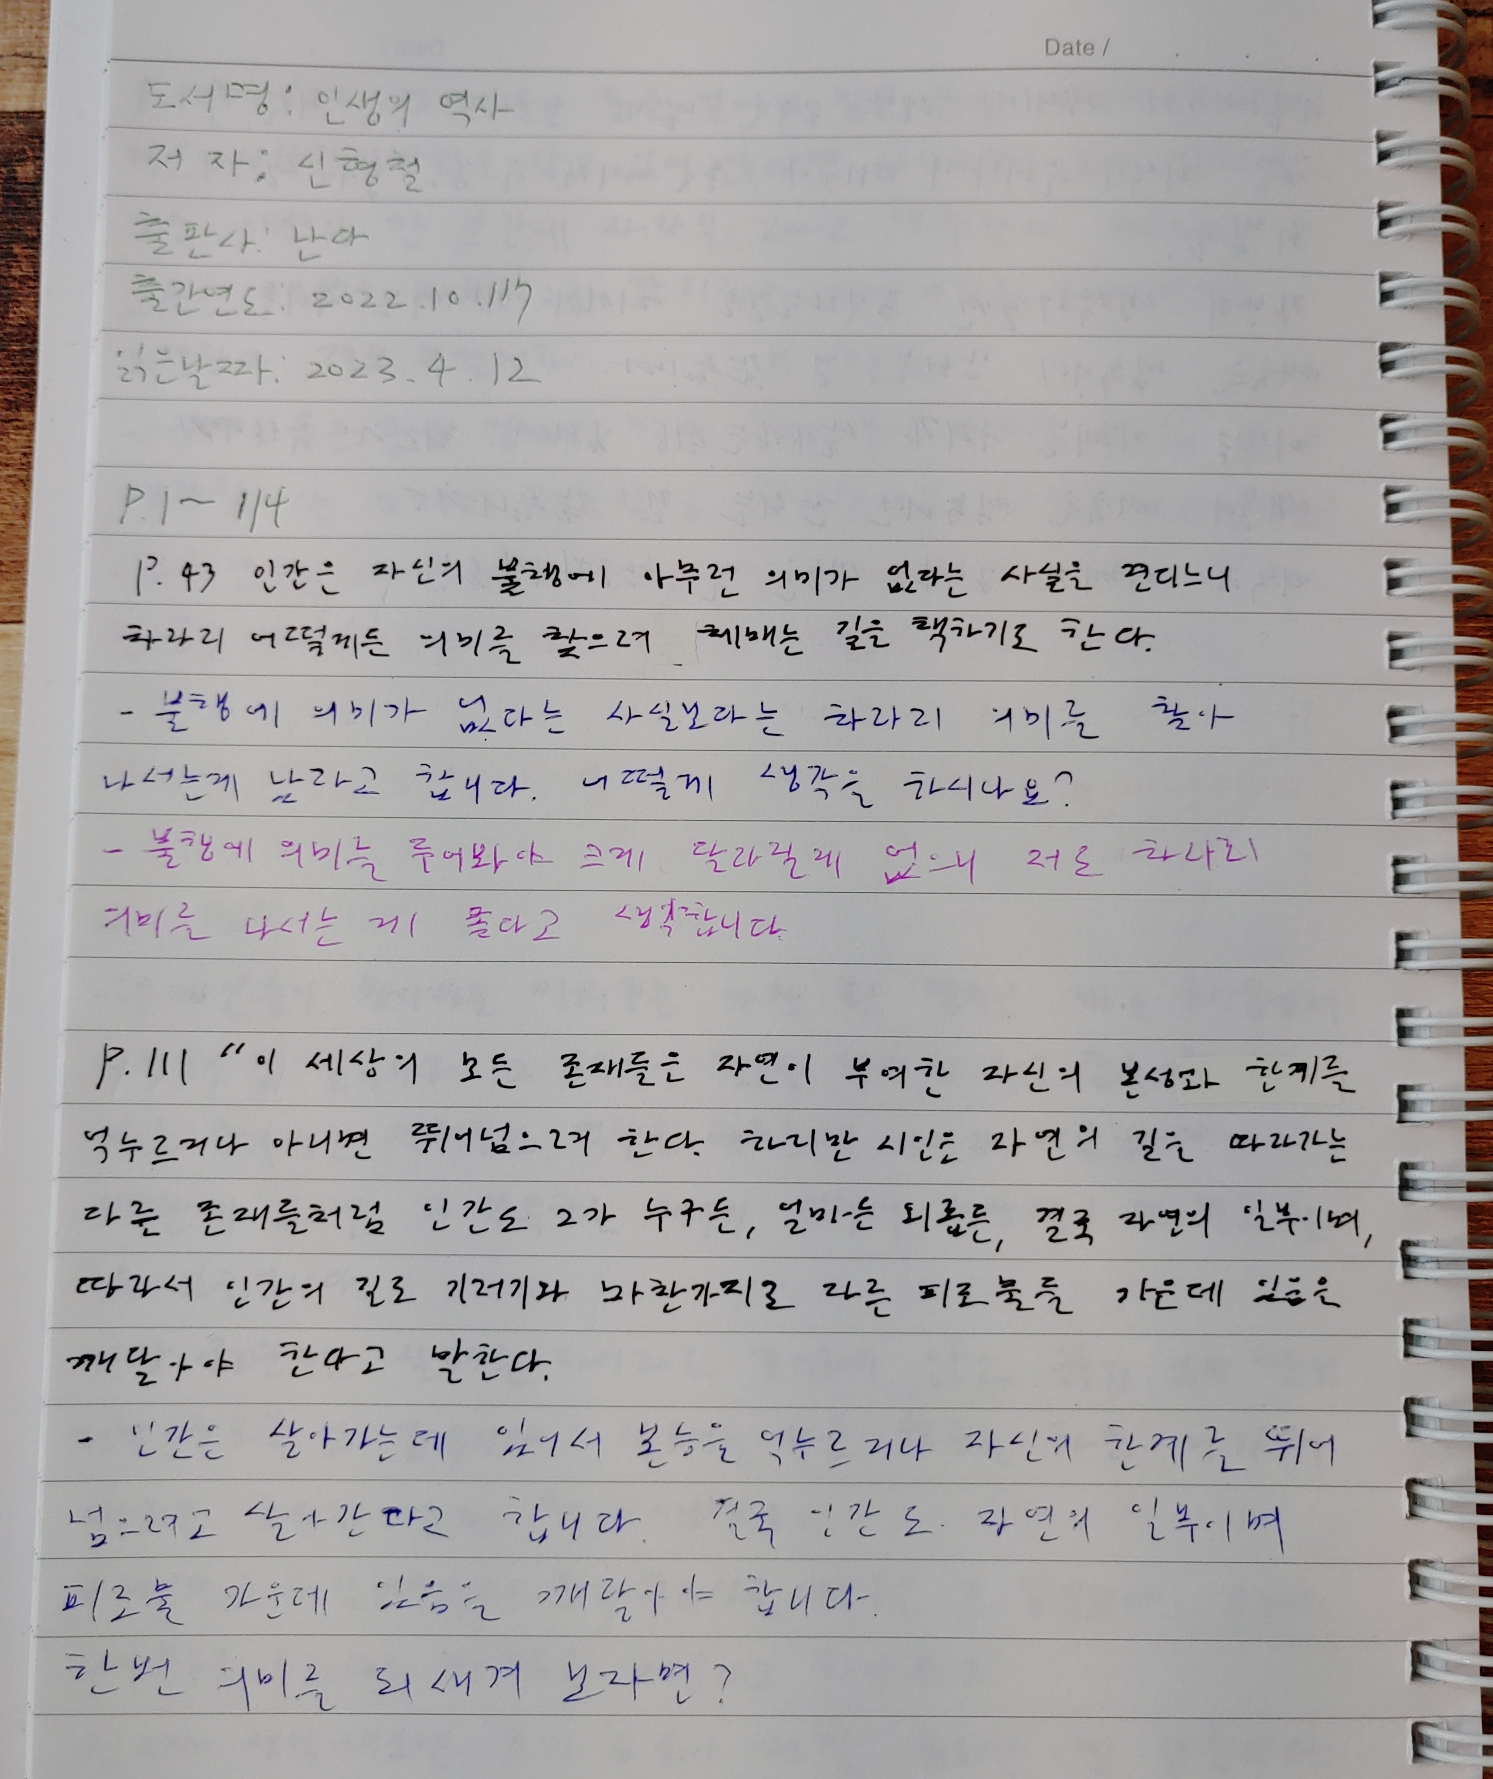 Date /
도서명: 인생의 역사
저 자: 신형철
출판사: 난다
출간연도: 2022.10.
읽은날짜: 2023.4.12
P.1~114
P.43 인간은 자신의 불행에 아무런 의미가 없다는 사실을 견디느니
차라리 어떻게든 의미를 찾으려 헤매는 길을 택하기도 한다.
- 불행에 의미가 없다는 사실보다는 차라리 의미를 찾아
나서는게 낫다고 합니다. 어떻게 생각을 하시나요?
- 불행에 의미를 두어봐야 크게 달라질게 없으니 저도 차라리
의미를 나서는 게 좋다고 생각합니다.
P.111 "이 세상의 모든 존재들은 자연이 부여한 자신의 본성과 한계를
억누르거나 아니면 뛰어넘으려 한다. 하지만 시인은 자연의 길을 따라가는
다른 존재들처럼 인간도 그가 누구든, 얼마나든 외롭든, 결국 자연의 일부이며,
따라서 인간의 길도 기러기와 마찬가지로 다른 피조물들 가운데 있음은
깨달아야 한다고 말한다.
- 인간은 살아가는데 있어서 본능을 억누르거나 자신의 한계를 뛰어
넘으려고 살아간다고 합니다. 결국 인간도 자연의 일부이며
피조물 가운데 있음을 깨달아야 합니다.
한번 의미를 되새겨 보자면?